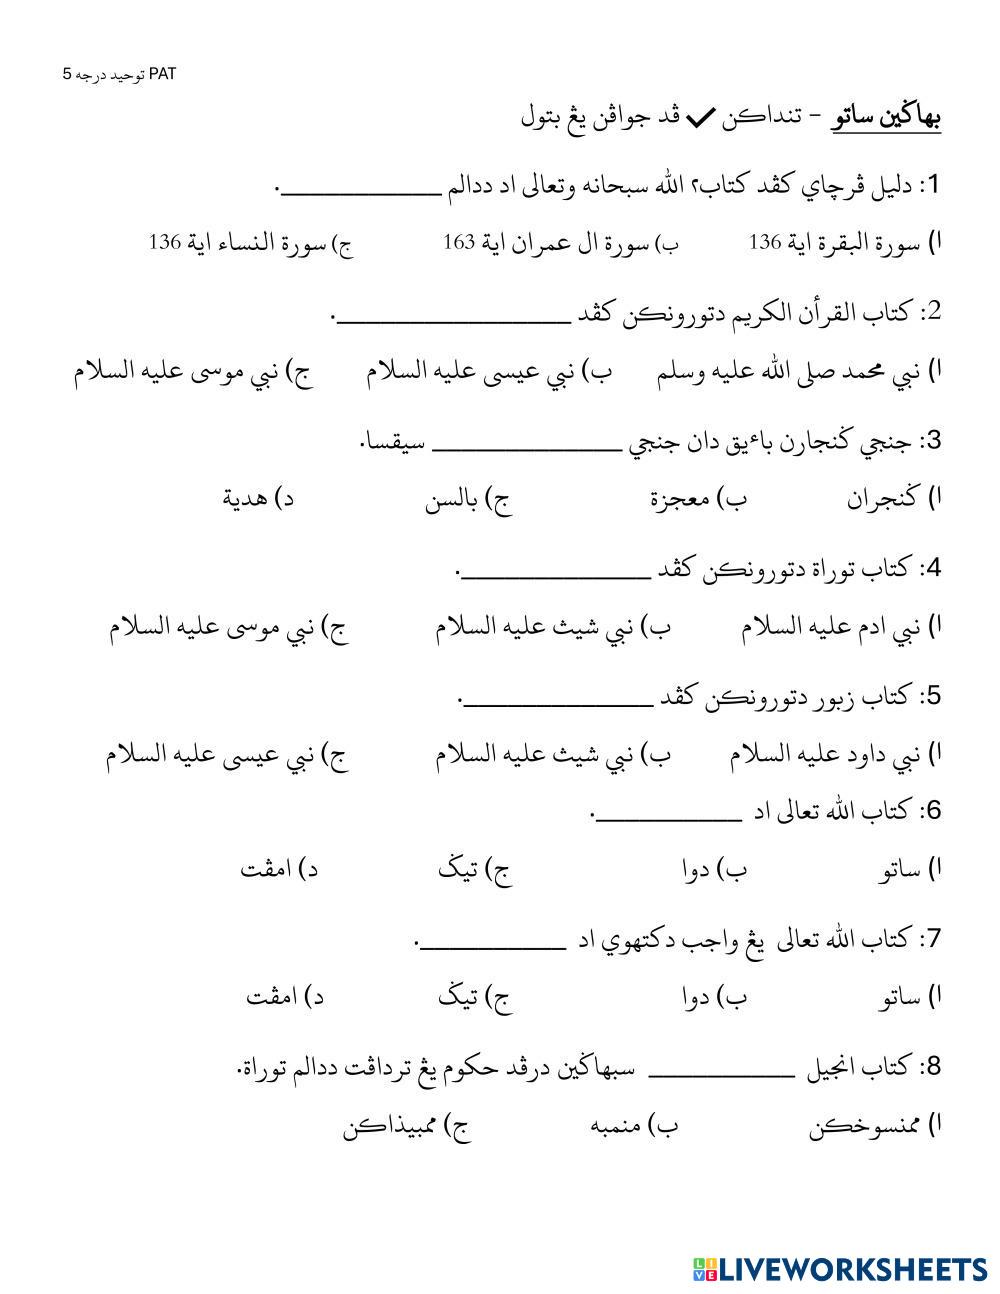 PAT توحيد درجه 5
بهاڬين ساتو - تنداکن ✓ ڤد جواڤن يڠ بتول
1: دليل ڤرچاي کڤد کتاب٢ الله سبحانه وتعالى اد ددالم ___________.
ا) سورة البقرة اية 136 ب) سورة ال عمران اية 163 ج) سورة النساء اية 136
2: کتاب القرأن الکريم دتورونکن کڤد ________________.
ا) نبي محمد صلى الله عليه وسلم ب) نبي عيسى عليه السلام ج) نبي موسى عليه السلام
3: جنجي ڬنجارن باءيق دان جنجي _____________ سيقسا.
ا) ڬنجران ب) معجزة ج) بالسن د) هدية
4: کتاب توراة دتورونکن کڤد _____________.
ا) نبي ادم عليه السلام ب) نبي شيث عليه السلام ج) نبي موسى عليه السلام
5: کتاب زبور دتورونکن کڤد _____________.
ا) نبي داود عليه السلام ب) نبي شيث عليه السلام ج) نبي عيسى عليه السلام
6: کتاب الله تعالى اد __________.
ا) ساتو ب) دوا ج) تيݢ د) امڤت
7: کتاب الله تعالى يڠ واجب دکتهوي اد __________.
ا) ساتو ب) دوا ج) تيݢ د) امڤت
8: کتاب انجيل __________ سبهاڬين درڤد حکوم يڠ ترداڤت ددالم توراة.
ا) ممنسوخکن ب) منمبه ج) ممبيذاکن
LIVEWORKSHEETS